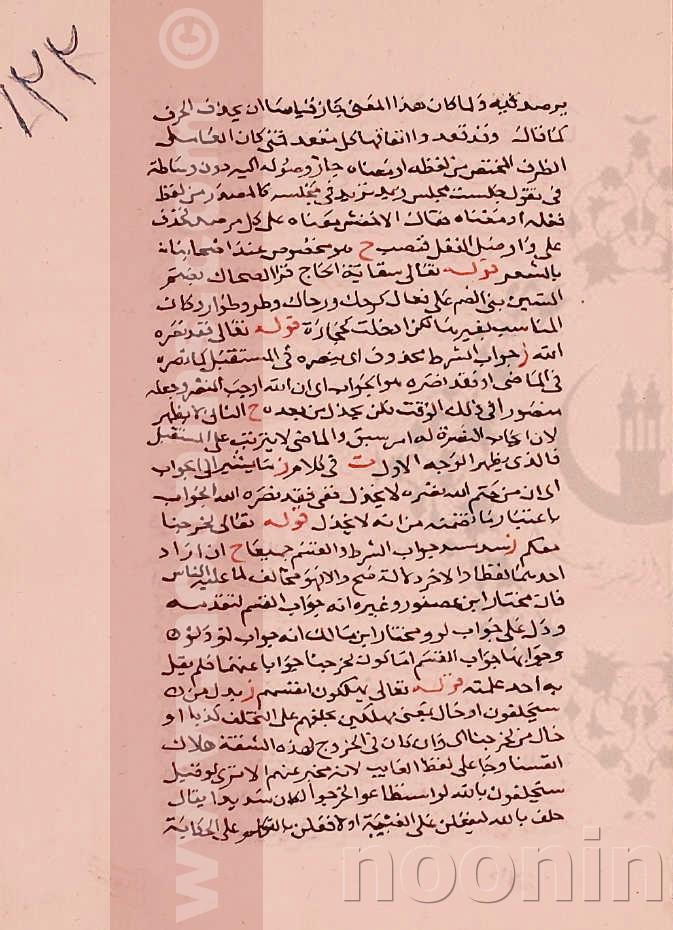 ١٢٢
يرصد فيه ولما كان هذا المعنى جاز قياسا ان يحذف الحرف
كما قال وقد قعدوا انفاقها كل مقعد فمتى كان العامل
الظرف المختص من لفظه او معناه جاز وصوله اليه دون وساطة
في تقول جلست مجلس زيد تريد في مجلسه كالمصدر من لفظ
فعله او معناه فقال الاخفش معناه على كل مرصد فحذف
على واوصل الفعل فنصب ح هو مخصوص عند اصحابنا
بالشعر قوله تعالى سقاية الحاج قرا الضحاك بضم
السين بنى الضم على فعال كرخل ورخال وظئر وظؤار وكان
المناسب بغير هاء لكن ادخلت كحجارة قوله تعالى فقد نصره
الله ز جواب الشرط محذوف اي ينصره في المستقبل كما نصره
في الماضي او فقد نصره هو الجواب اي ان الله اوجب النصر وجعله
منصورا في ذلك الوقت فلن يخذل من بعده ح الثاني لا يظهر
لان ايجاب النصرة له امر سبق والماضي لا يترتب على المستقبل
فالذي يظهر الوجه الاول ت في كلام ز ما يشير الى الجواب
اي ان من حتم الله نصره لا يخذل ففي فقد نصره الله الجواب
باعتبار ما تضمنه من انه لا يخذل قوله تعالى لخرجنا
معكم ز سد مسد جواب الشرط والقسم جميعا ح ان اراد
احدهما لفظا والاخر دلالة صح والا فهو مخالف لما عليه الناس
قال مختار ابن عصفور وغيره انه جواب القسم لتقدمه
ودل على جواب لو ومختار ابن مالك انه جواب لو ولو
وجوابها جواب القسم اما كون لخرجنا جوابا عنهما فلم يقل
به احد علمته قوله تعالى يهلكون انفسهم ز بدل من
سيحلفون او حال بمعنى مهلكين بحلفهم على التخلف كذبا او
حال من لخرجنا اي وان كان في الخروج لهذه الشقة هلاك
انفسنا وجا على لفظ الغايب لانه مخبر عنهم الا ترى لو قيل
سيحلفون بالله لو استطاعوا لخرجوا لكان سديدا يقال
حلف بالله ليفعلن على الغيبة او لافعلن بالتكلم على الحكاية
©
www.
noonin